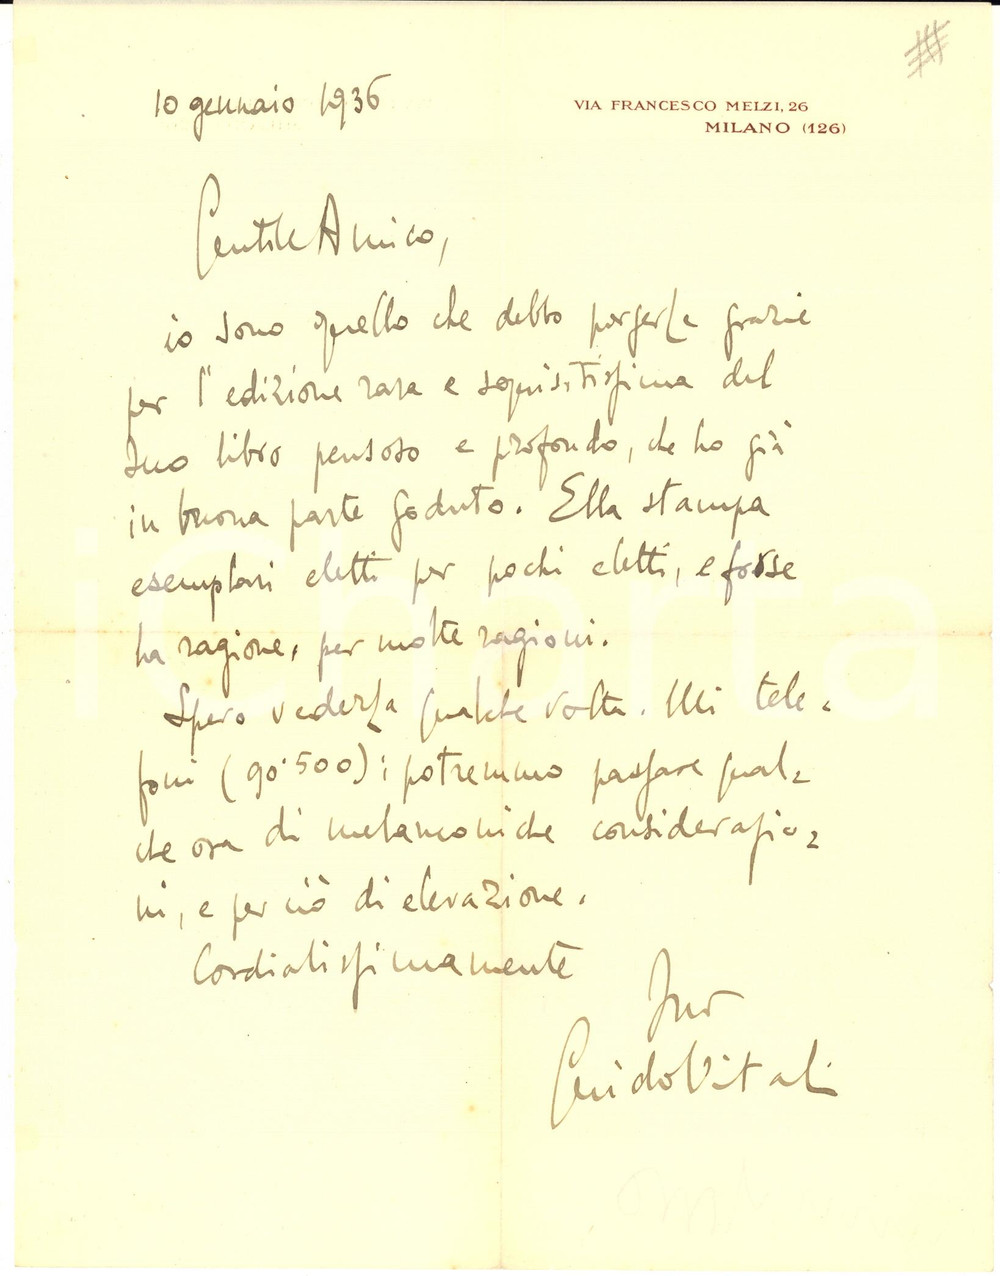 10 gennaio 1936
VIA FRANCESCO MELZI, 26
MILANO (126)
Gentile Amico,
io sono quello che debbo porgerLe grazie
per l'edizione rara e squisitissima del
Suo libro pensoso e profondo, che ho già
in buona parte goduto. Ella stampa
esemplari eletti per pochi eletti, e forse
ha ragione, per molte ragioni.
Spero vederLa qualche volta. Mi tele-
foni (90-500); potremmo passare qual-
che ora di melanconiche considerazio-
ni, e per ciò di elevazione.
Cordialissimamente
Suo
Guido Vitali
iCharta